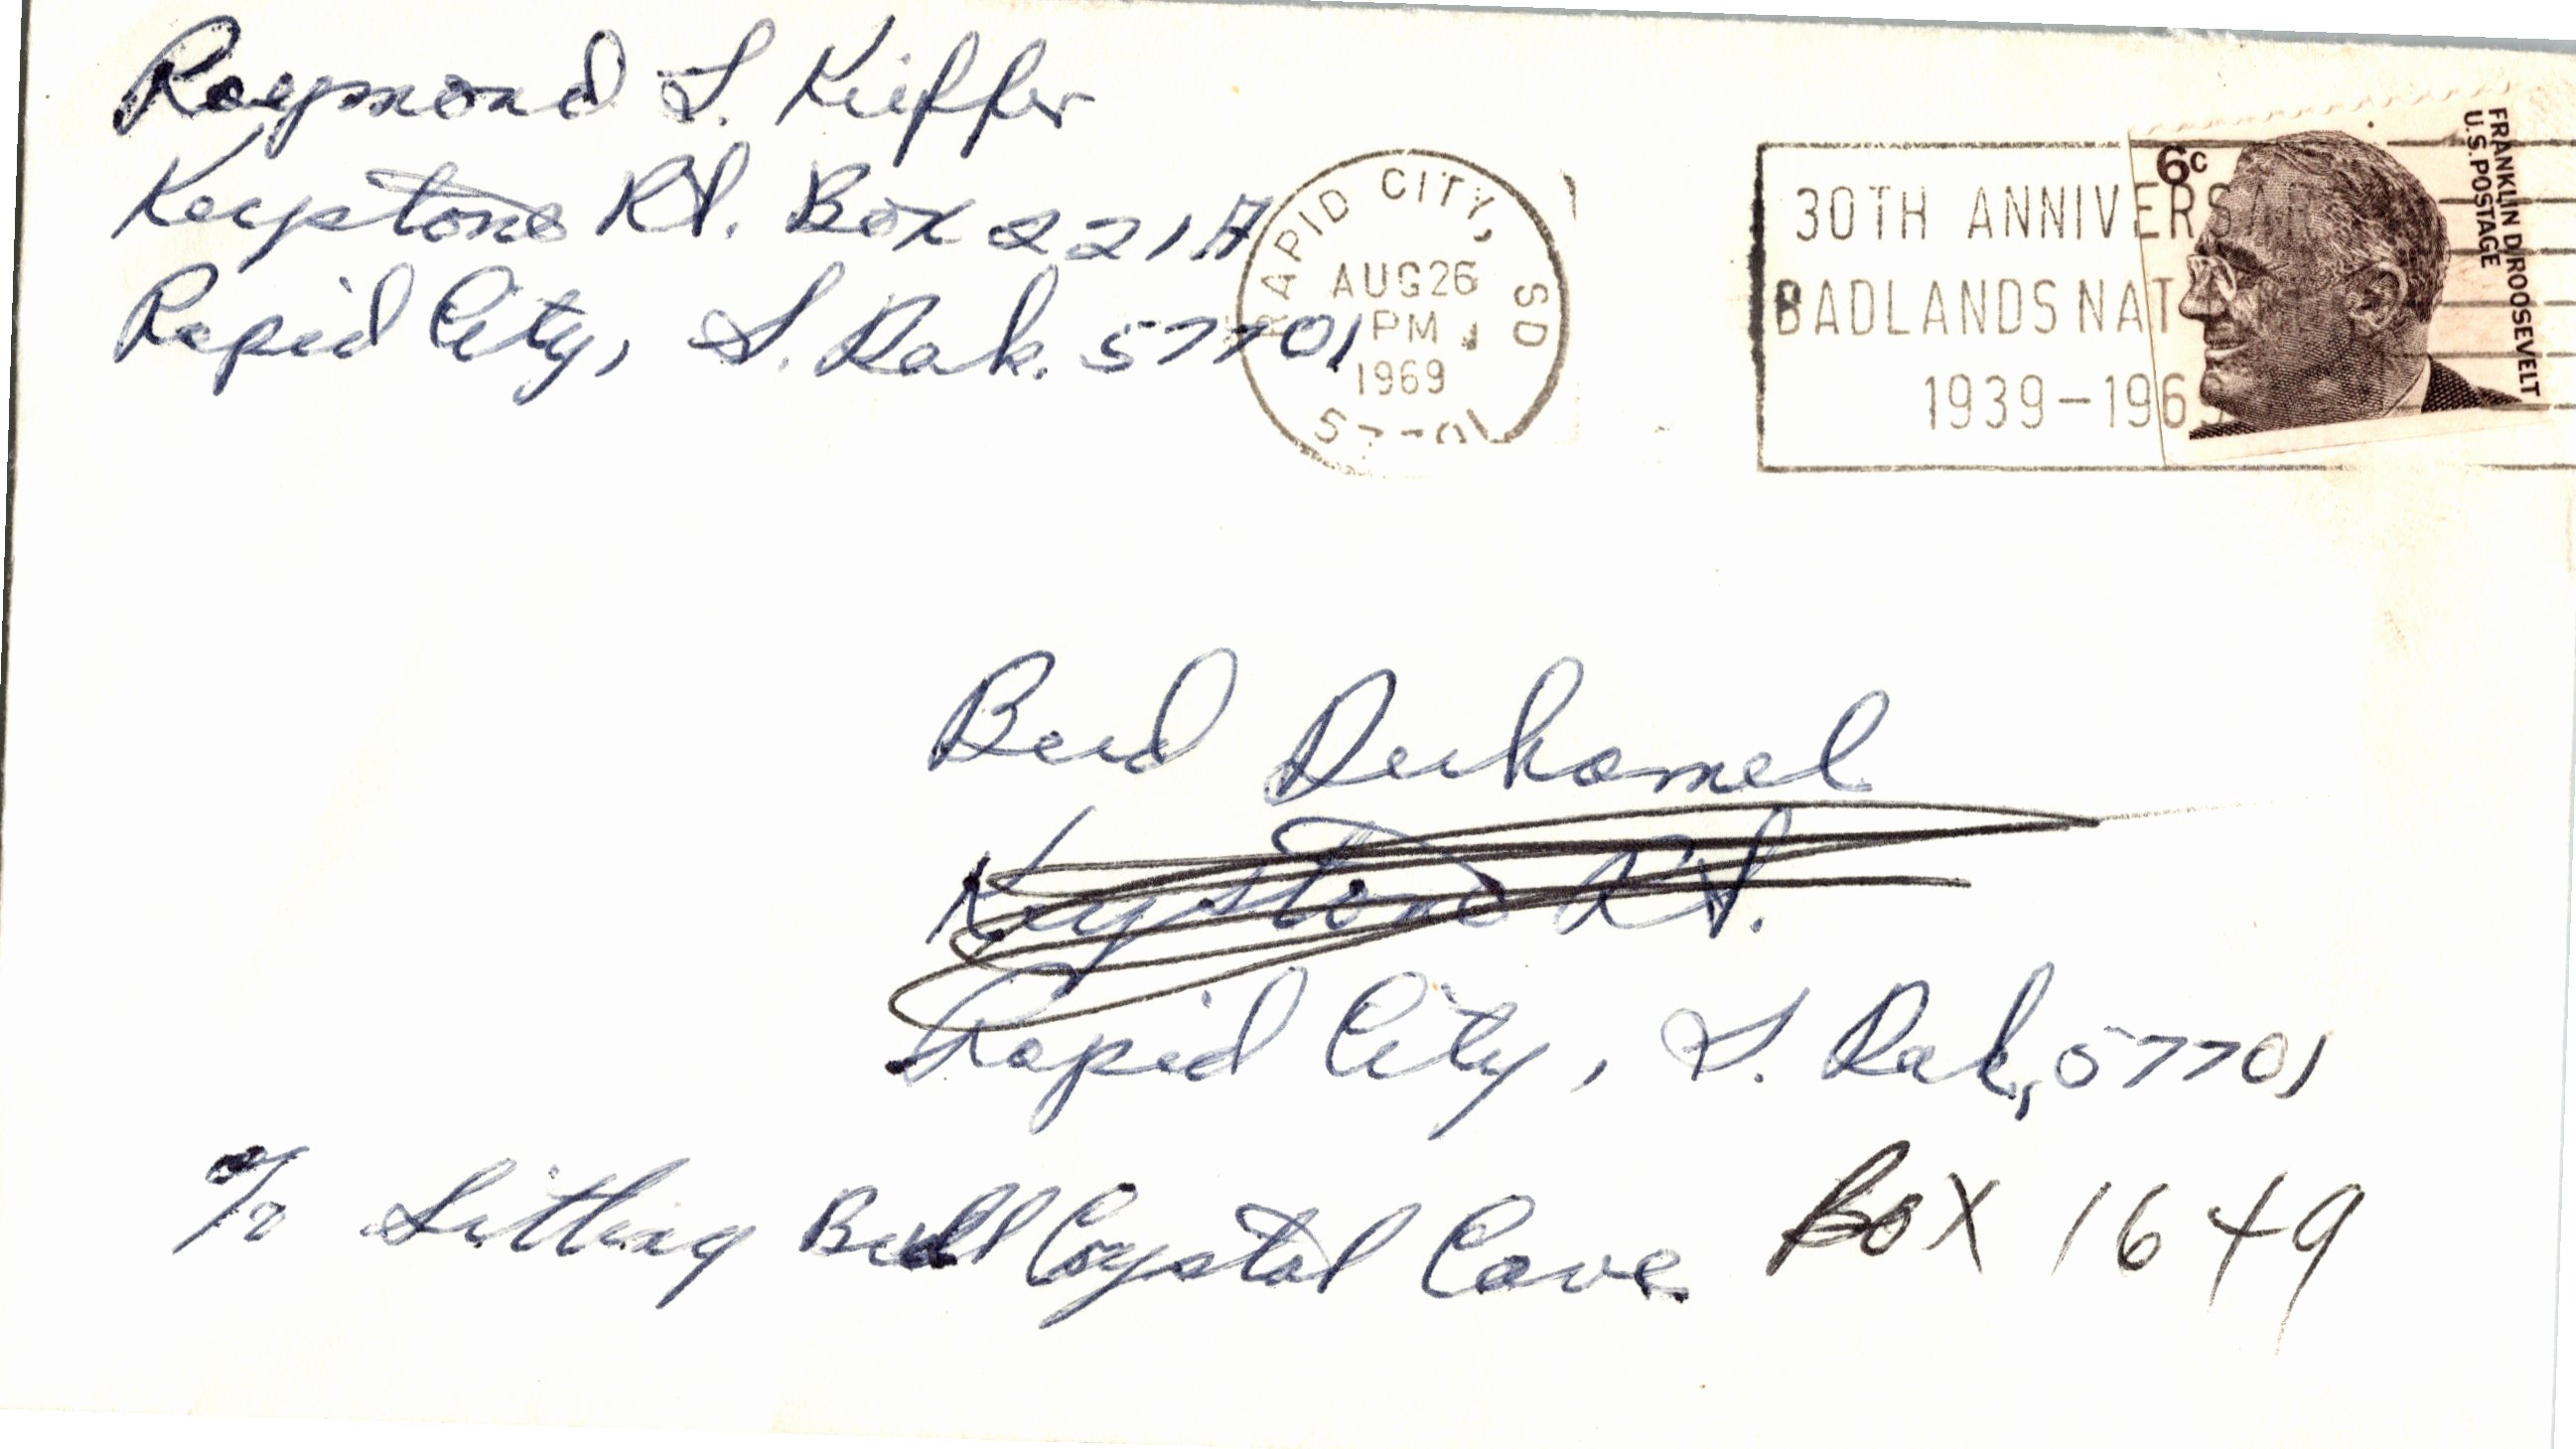 Raymond L. Kieffer
Keystone Rt. Box 221A
Rapid City, S. Dak. 57701
RAPID CITY, SD
AUG 26
PM
1969
57701
30TH ANNIVERSAR
BADLANDS NAT
1939-1969
6c
FRANKLIN D. ROOSEVELT
U.S. POSTAGE
Bud Duhamel
Keystone Rt.
Rapid City, S. Dak, 57701
c/o Sitting Bull Crystal Cave
Box 1649